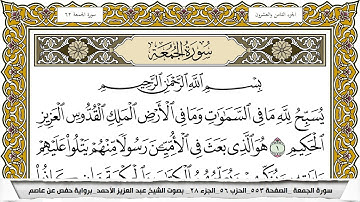 سورة الجمعة ٦٢
الجزء الثامن والعشرون
سُورَةُ الجُمُعَةِ
بِسْمِ اللَّهِ الرَّحْمَٰنِ الرَّحِيمِ
يُسَبِّحُ لِلَّهِ مَا فِي السَّمَاوَاتِ وَمَا فِي الْأَرْضِ الْمَلِكِ الْقُدُّوسِ الْعَزِيزِ
الْحَكِيمِ ١ هُوَ الَّذِي بَعَثَ فِي الْأُمِّيِّينَ رَسُولًا مِّنْهُمْ يَتْلُو عَلَيْهِمْ
سورة الجمعة _الصفحة ٥٥٣_الحزب ٥٦_الجزء ٢٨_ بصوت الشيخ عبد العزيز الأحمد_برواية حفص عن عاصم